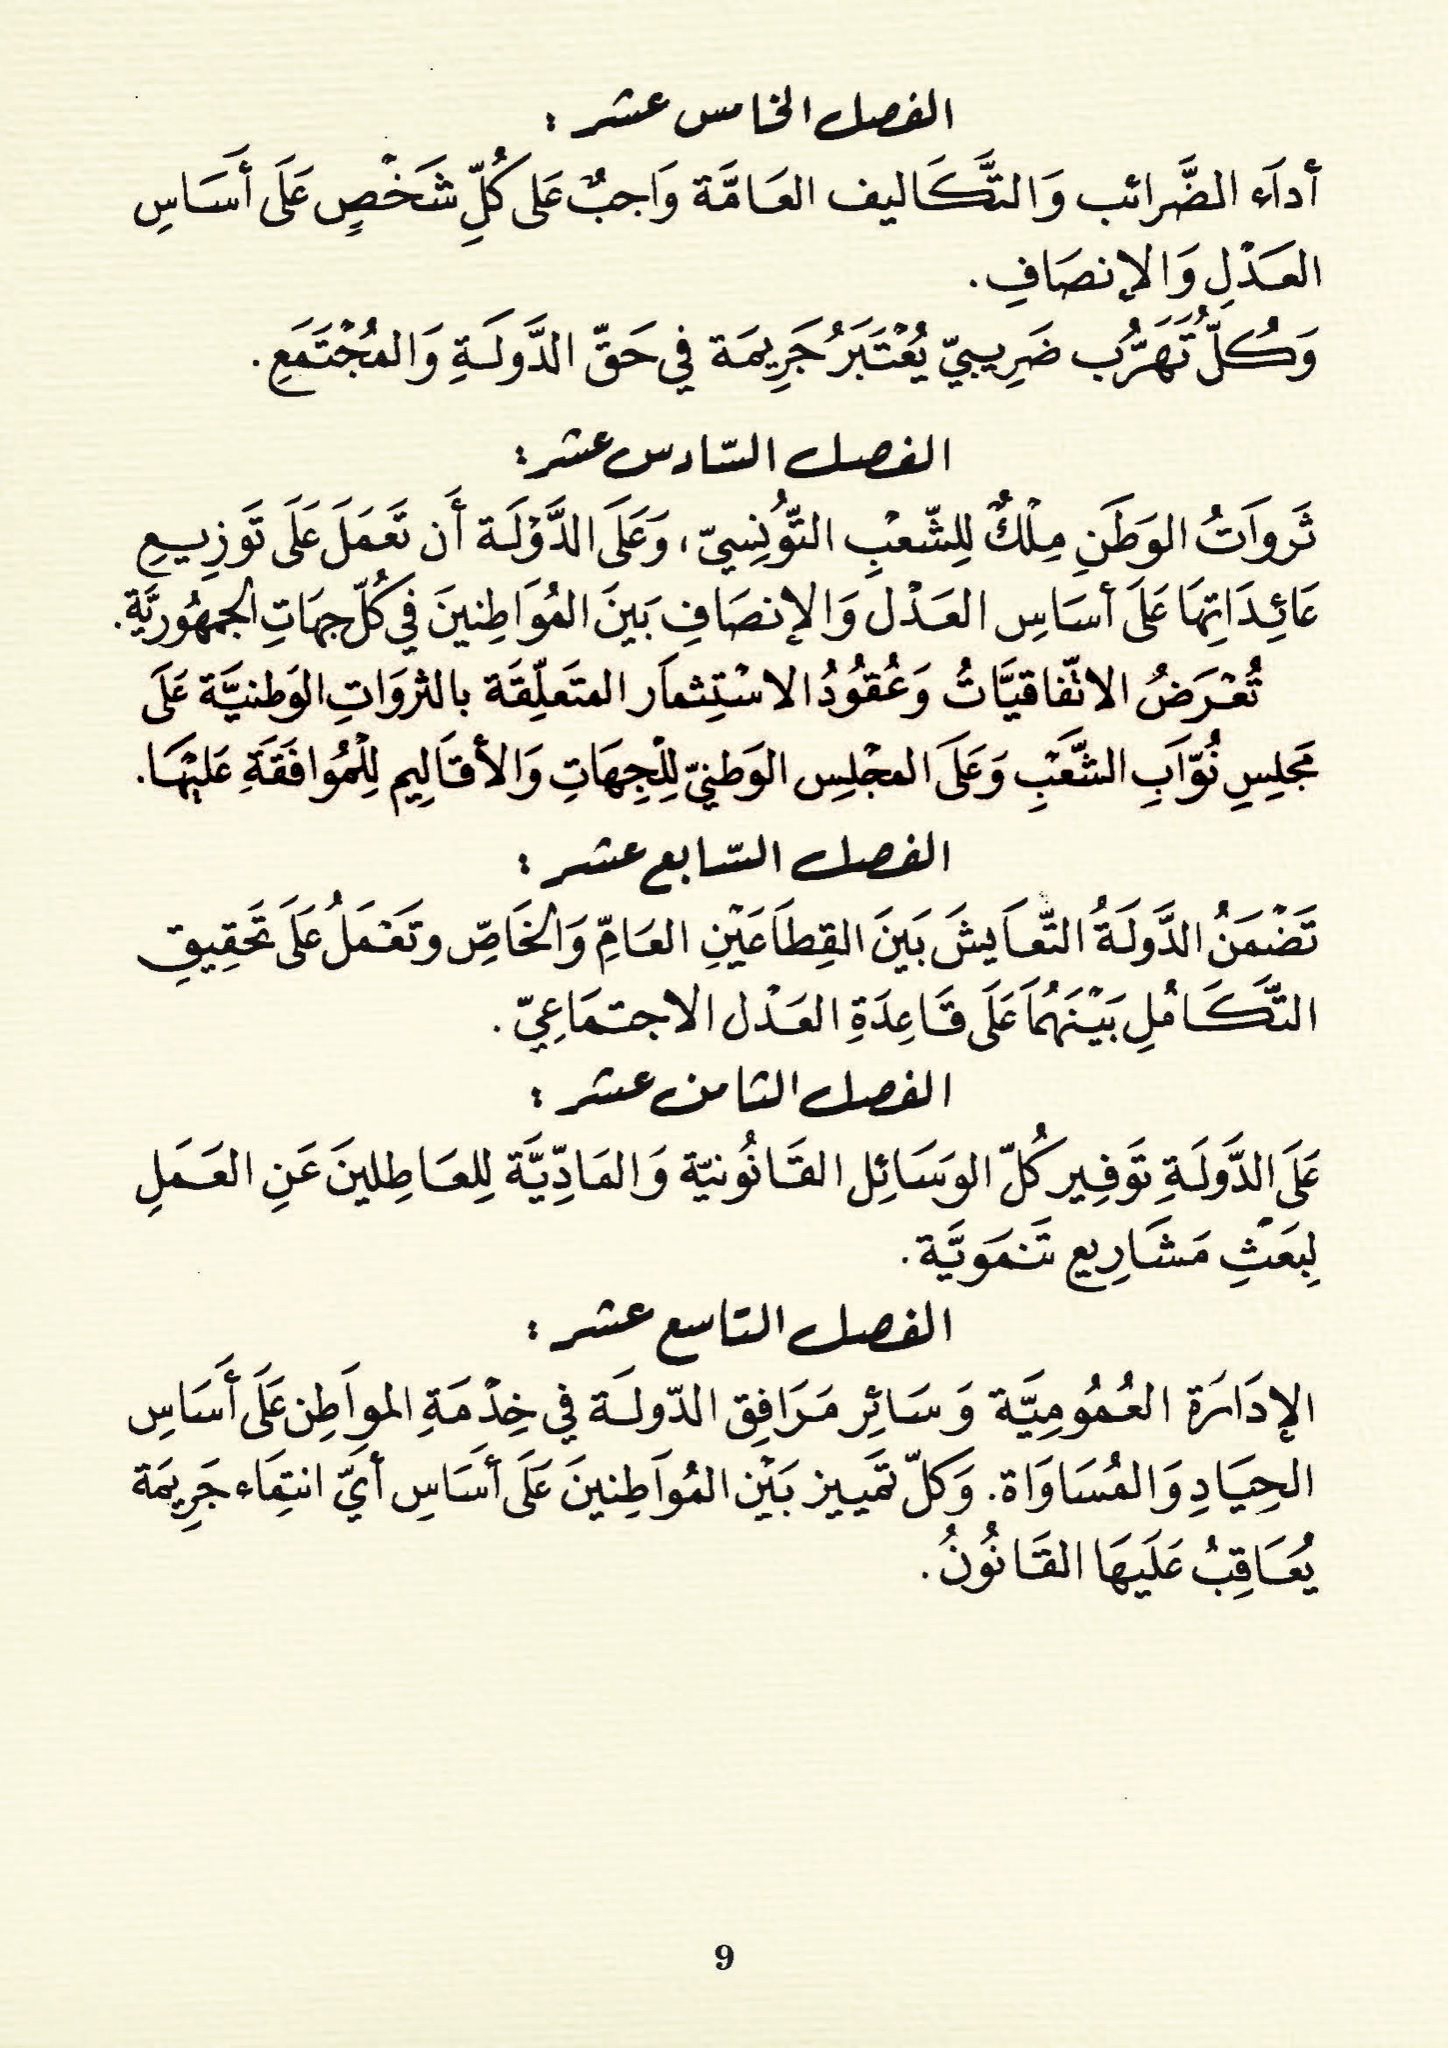 الفصل الخامس عشر :
أداَء الضَّرائب وَالتَّكَاليف العَامَّة وَاجبٌ عَلى كُلِّ شَخْصٍ عَلَى أَسَاسِ
العَدْلِ وَالإنصَافِ.
وَكُلُّ تَهَرُّب ضَرِيبيّ يُعْتَبَرُ جَرِيمَة في حَقّ الدَّولَةِ وَالمُجْتَمَعِ.
الفصل السّادس عشر:
ثَرواَتُ الوَطَنِ مِلْكٌ لِلشّعْبِ التّوُنِسِيّ، وَعَلَى الدَّوْلَة أَن تَعَمَلَ عَلَى تَوَزِيعِ
عَائِدَاتِهَا عَلَى أسَاسِ العَدْل وَالإنصَافِ بَينَ المُوَاطِنينَ في كُلّ جِهَاتِ الجمهُوريَّة.
تُعْرَضُ الاتّفاقيَّاتُ وَعُقُودُ الاسْتِثماَر المتَعَلِّقَة بالثروَاتِ الوَطنيَّة عَلَى
مَجلِسِ نُوّاَبِ الشَّعَبِ وَعَلَى المجْلِس الوَطنيّ لِلْجِهَاتِ وَالأقاَلِيم لِلْمُوَافَقَةِ عَلَيْهَا.
الفصل السّابع عشر :
تَضْمَنُ الدَّولَةُ التّعاَيشَ بَينَ القِطاَعَيْنِ العَامِّ وَالخَاصِّ وتَعْمَلُ عَلَى تَحَقِيقِ
التَّكَامُلِ بَيْنَهُماَ عَلَى قَاعِدَةِ العَدْل الاجتمَاعِيّ.
الفصل الثامن عشر :
عَلَى الدَّولَةِ تَوَفِير كُلّ الوسَائِل القَانُونيّة وَالمَادِّيَّة لِلعَاطِلينَ عَنِ العَمَلِ
لِبَعَثِ مَشَارِيع تَنمَويَّة.
الفصل التاسع عشر :
الإدَارَة العُمُومِيَّة وَسَائِر مَرَافِق الدّولَة في خِدْمَةِ المواَطِن عَلَى أَسَاسِ
الحِيَادِ وَالمُسَاوَاة. وَكلّ تمَييز بَيْن المُواَطِنينَ عَلَى أَسَاسِ أيّ انتِمَاء جَرِيمَة
يُعَاقِبُ عَلَيهَا القَانُونُ.
9